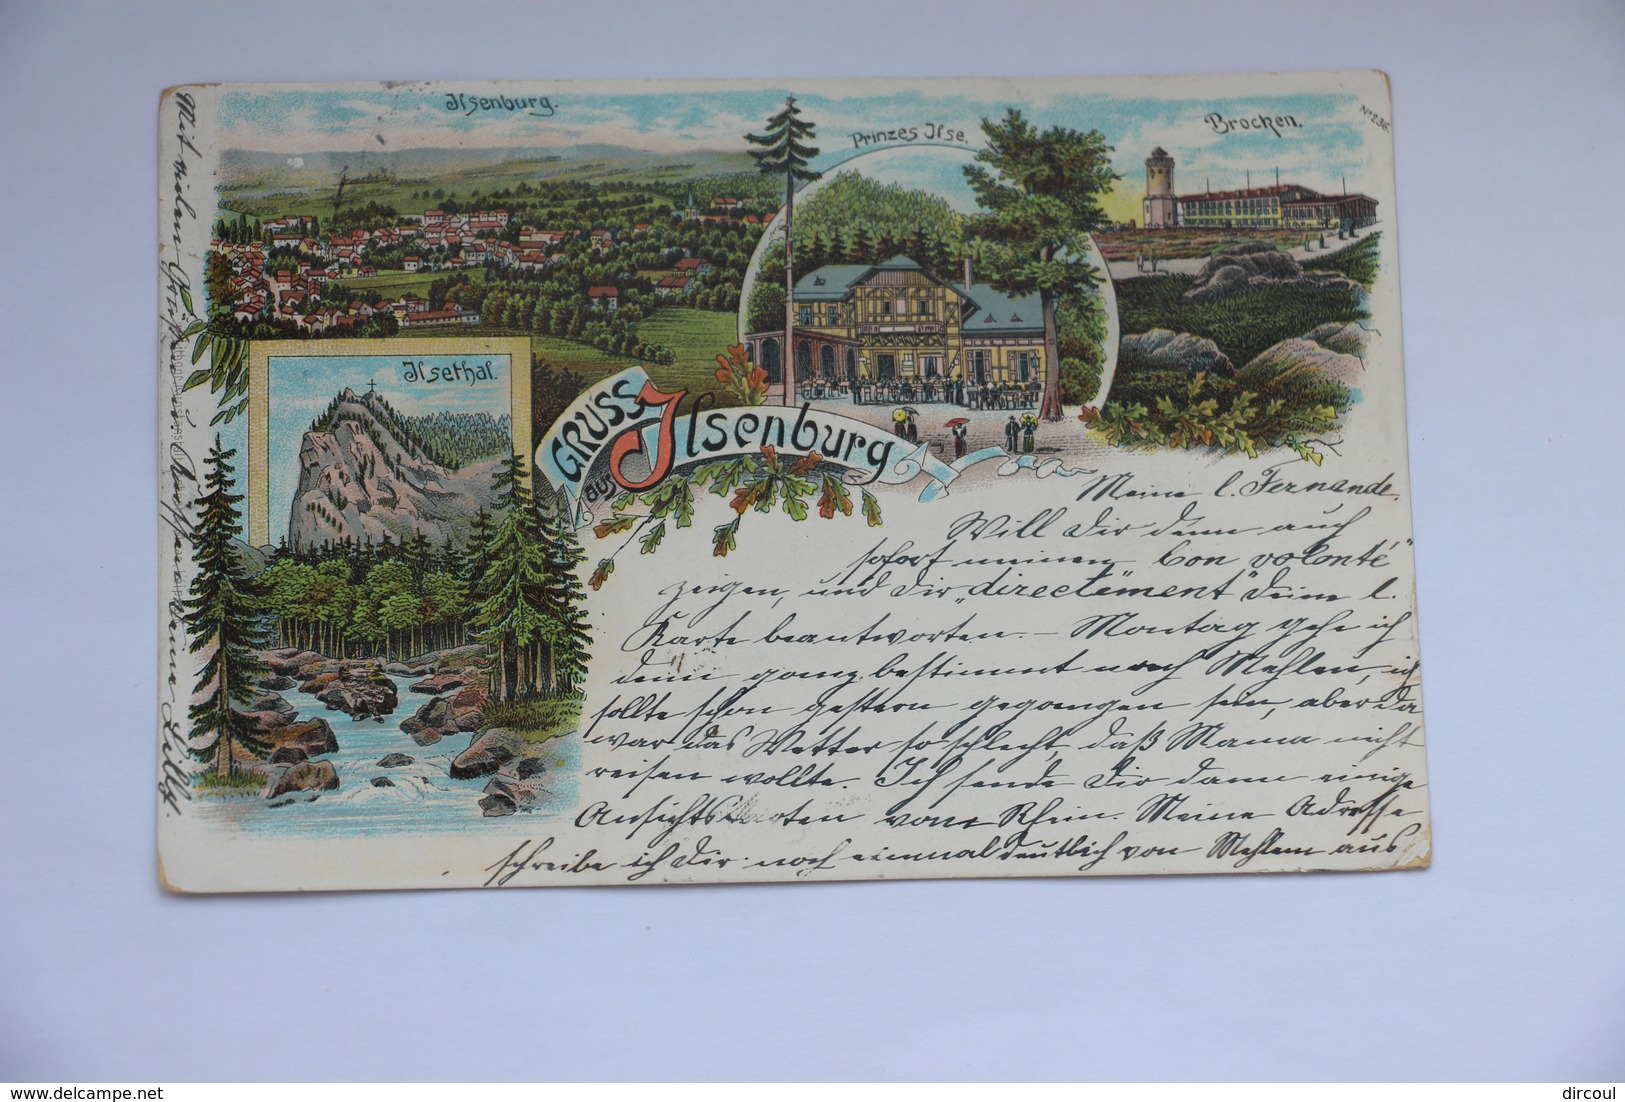 Ilsenburg.
Prinzes Ilse.
Brocken.
No 236.
Ilsethal.
GRUSS
aus Ilsenburg
Meine l. Fernande.
Will Dir denn auch
sofort meinen bon volonté"
zeigen, und Dir „directement" Deine l.
Karte beantworten. – Montag gehe ich
denn ganz bestimmt nach Mehlem, ich
sollte schon gestern gegangen sein, aber da
war das Wetter so schlecht, daß Mama nicht
reisen wollte. Ich sende Dir dann einige
Ansichtskarten vom Rhein. Meine Adresse
schreibe ich Dir noch einmal deutlich von Mehlem aus
Mit vielen Grüßen u. Küssen Deine Lilly.
delcampe.net
dircoul